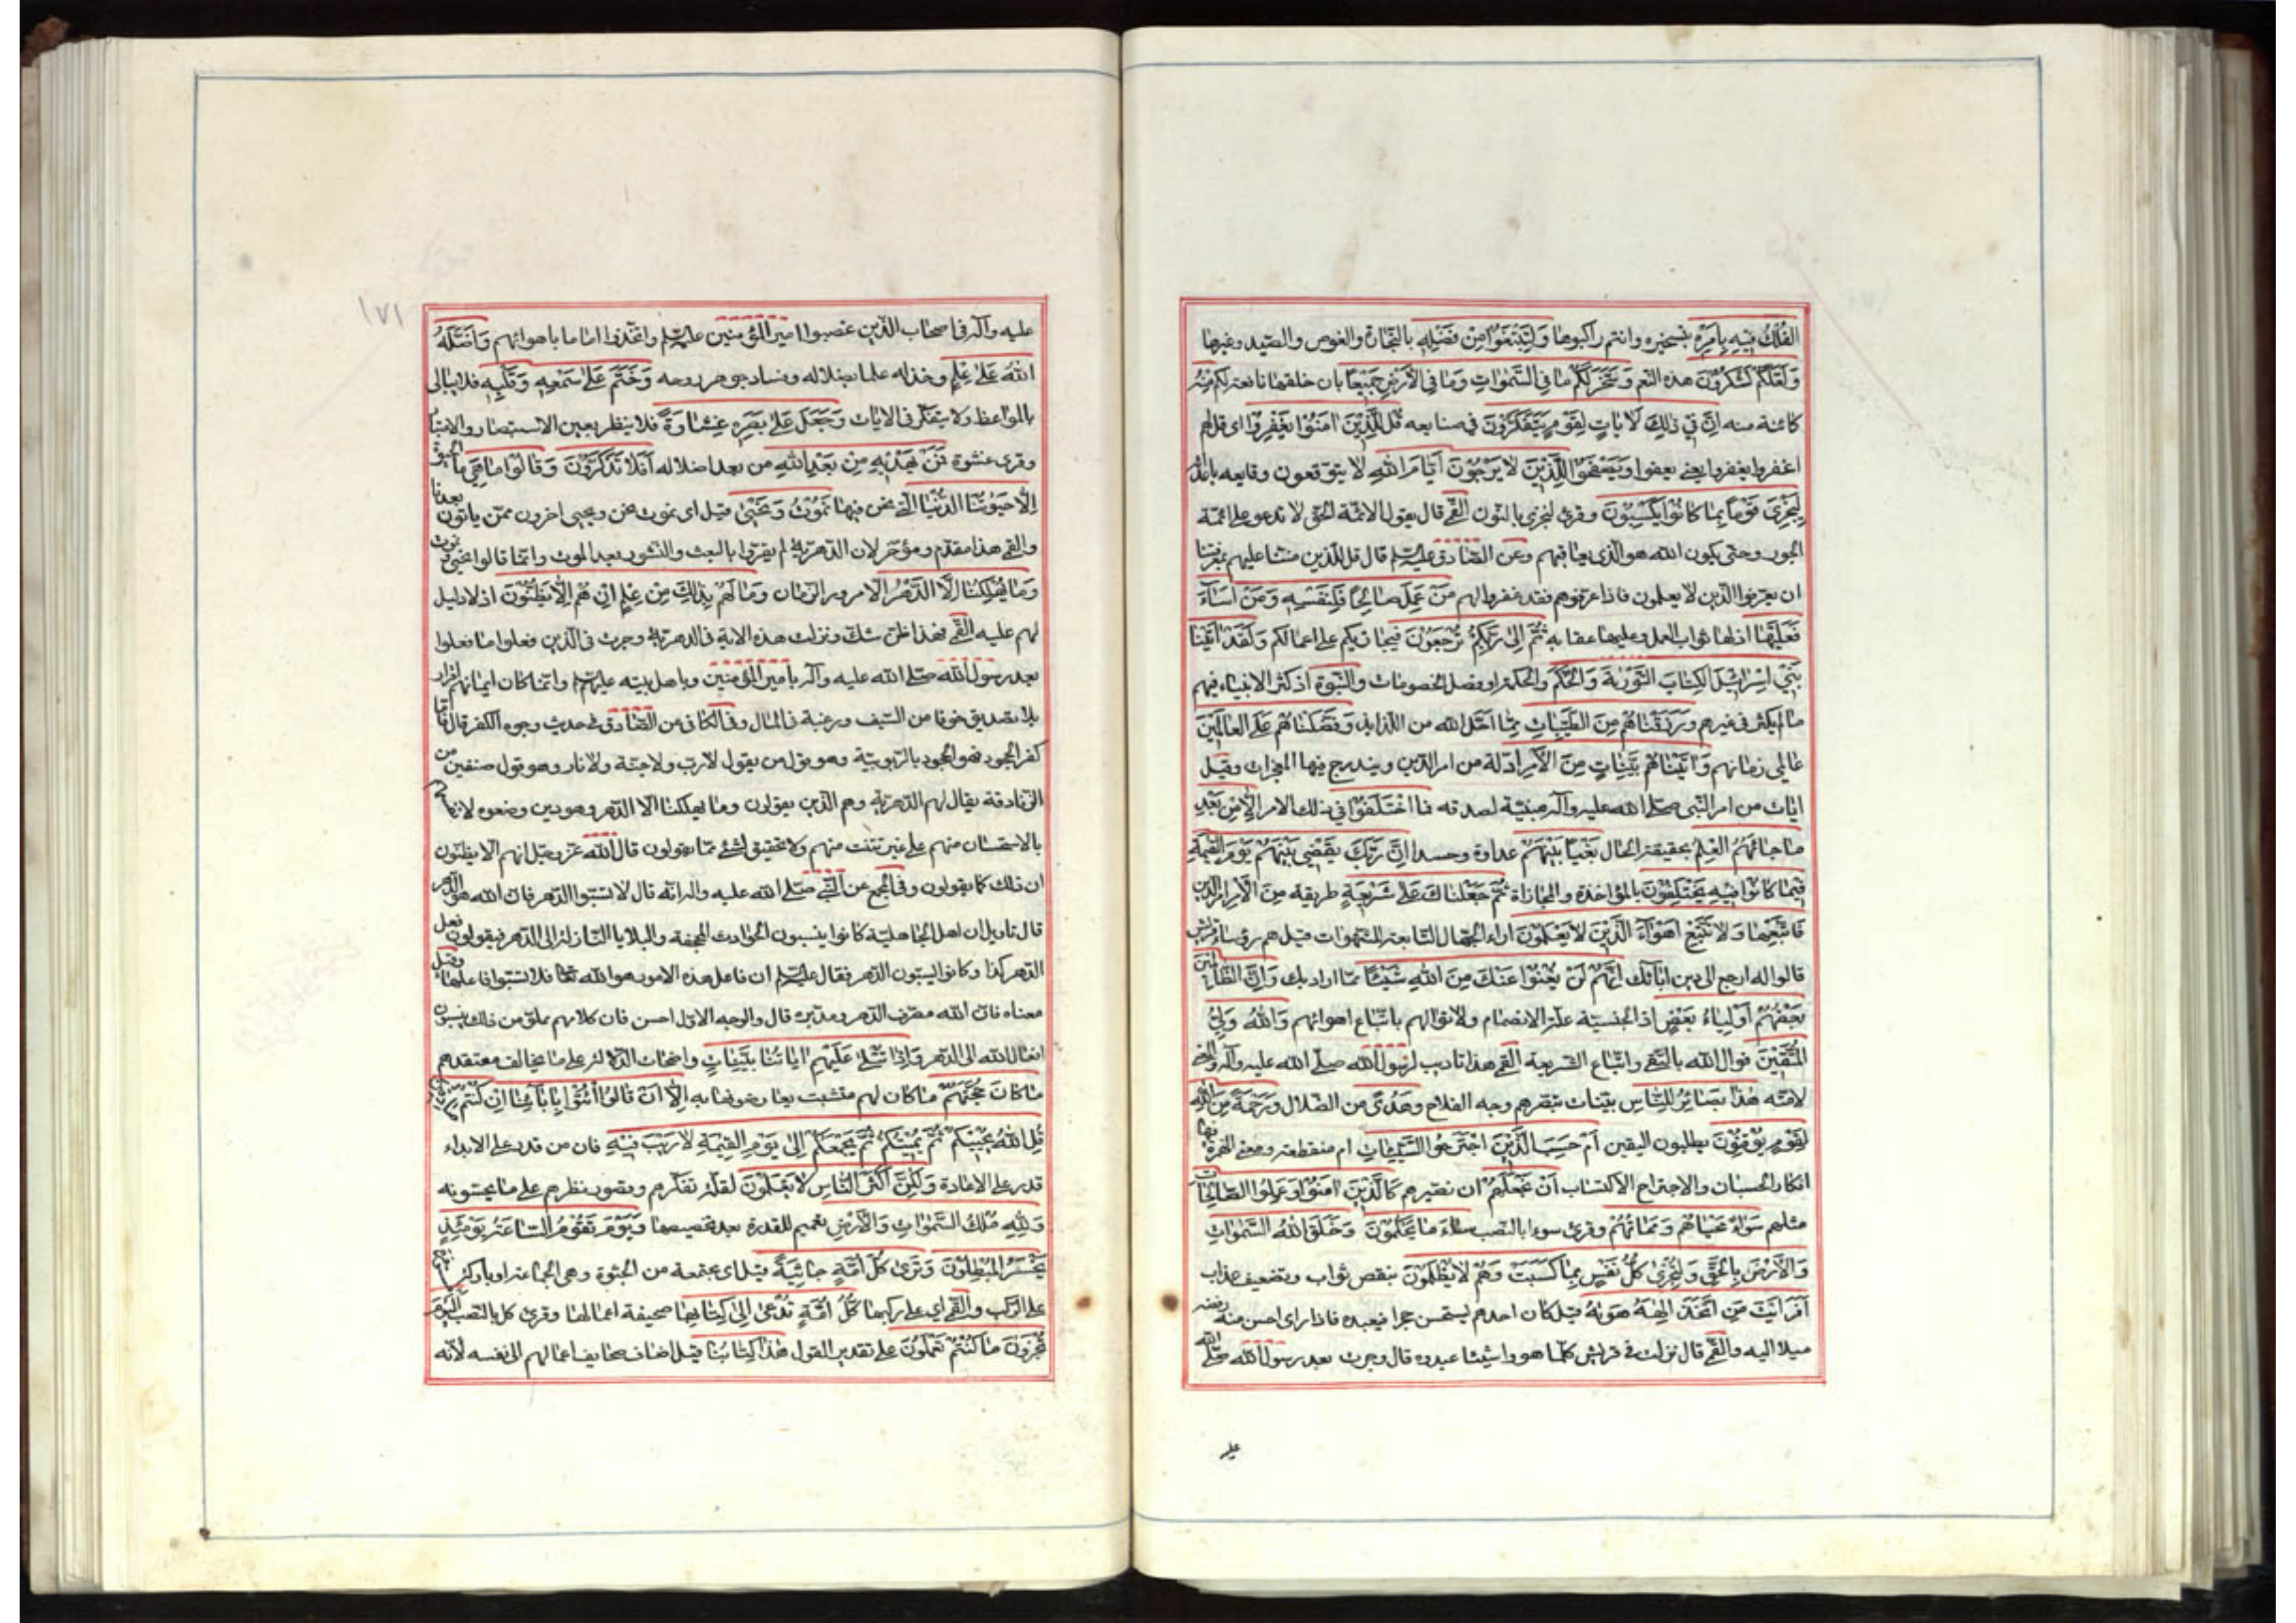 الفُلْكُ فِيهِ بِأَمْرِهِ بتسخيره وانتم راكبوها وَلِتَبْتَغُوا مِنْ فَضْلِهِ بالتجارة والغوص والصّيد وغيرها
وَلَعَلَّكُمْ تَشْكُرُونَ هذه النعم وَسَخَّرَ لَكُمْ مَا فِي السَّمٰوَاتِ وَمَا فِي الْأَرْضِ جَمِيعًا بان خلقها نافعة لكم مِنْهُ
كائنة منه اِنَّ فِي ذٰلِكَ لَاٰيَاتٍ لِقَوْمٍ يَتَفَكَّرُونَ في صنايعه قُلْ لِلَّذِينَ اٰمَنُوا يَغْفِرُوا اى قل لهم
اغفروا يغفروا يعنى يعفوا ويصفحوا لِلَّذِينَ لَا يَرْجُونَ أَيَّامَ اللّٰهِ لا يتوقعون وقايعه باعدائه
لِيَجْزِيَ قَوْمًا بِمَا كَانُوا يَكْسِبُونَ وقرئ لنجزى بالنون القمّي قال يقول لائمة الحق لا تدعو على ائمّة
الجور وحتى يكون الله هو الّذى يعاقبهم وعن الصّادق عليه السلم قال قل للذين مننا عليهم بمعرفتنا
ان يعرّفوا الذين لا يعلمون فاذا عرّفوهم فقد غفروا لهم مَنْ عَمِلَ صَالِحًا فَلِنَفْسِهِ وَمَنْ اَسَاءَ
فَعَلَيْهَا اذ لها ثواب العمل وعليها عقابه ثُمَّ اِلَى رَبِّكُمْ تُرْجَعُونَ فيجازيكم على اعمالكم وَلَقَدْ اٰتَيْنَا
بَنِي اِسْرَائِيلَ الْكِتَابَ التَّوْرٰيةَ وَالْحُكْمَ والحكمة او فصل الخصومات وَالنُّبُوَّةَ اذ كثر الانبياء فيهم
ما لم يكثر في غيرهم وَرَزَقْنَاهُمْ مِنَ الطَّيِّبَاتِ ممّا احلّ الله من اللذايذ وَفَضَّلْنَاهُمْ عَلَى الْعَالَمِينَ
عالمي زمانهم وَاٰتَيْنَاهُمْ بَيِّنَاتٍ مِنَ الْأَمْرِ ادلة من امر الدّين ويندرج فيها المعجزات وقيل
ايات من امر النّبى صلّى الله عليه وآله مبيّنة لصدقه فَمَا اخْتَلَفُوا في ذلك الامر اِلَّا مِنْ بَعْدِ
مَا جَاءَهُمُ الْعِلْمُ بحقيقة الحال بَغْيًا بَيْنَهُمْ عداوة وحسدا اِنَّ رَبَّكَ يَقْضِي بَيْنَهُمْ يَوْمَ الْقِيٰمَةِ
فِيمَا كَانُوا فِيهِ يَخْتَلِفُونَ بالمؤاخذة والمجازاة ثُمَّ جَعَلْنَاكَ عَلَى شَرِيعَةٍ طريقة مِنَ الْأَمْرِ امر الدين
فَاتَّبِعْهَا وَلَا تَتَّبِعْ اَهْوَاءَ الَّذِينَ لَا يَعْلَمُونَ اراء الجهّال التابعة للشهوات قيل هم رؤساء قريش
قالوا له ارجع الى دين ابائك اِنَّهُمْ لَنْ يُغْنُوا عَنْكَ مِنَ اللّٰهِ شَيْئًا ممّا اراد بك وَاِنَّ الظَّالِمِينَ
بَعْضُهُمْ أَوْلِيَاءُ بَعْضٍ اذ الجنسيّة علّة الانضمام ولا توالهم باتّباع اهوائهم وَاللّٰهُ وَلِيُّ
الْمُتَّقِينَ فوال الله بالتقى واتّباع الشريعة القمي هذا تاديب لرسول الله صلى الله عليه وآله والمعنى
لامّته هٰذَا بَصَائِرُ لِلنَّاسِ بيّنات تبصّرهم وجه الفلاح وَهُدًى من الضلال وَرَحْمَةٌ مِنَ اللّٰهِ
لِقَوْمٍ يُوقِنُونَ يطلبون اليقين اَمْ حَسِبَ الَّذِينَ اجْتَرَحُوا السَّيِّئَاتِ ام منقطعة ومعنى الهمزة فيها
انكار الحسبان والاجتراح الاكتساب اَنْ نَجْعَلَهُمْ ان نصيّرهم كَالَّذِينَ اٰمَنُوا وَعَمِلُوا الصَّالِحَاتِ
مثلهم سَوَاءً مَحْيَاهُمْ وَمَمَاتُهُمْ وقرئ سواء بالنصب سَاءَ مَا يَحْكُمُونَ وَخَلَقَ اللّٰهُ السَّمٰوَاتِ
وَالْأَرْضَ بِالْحَقِّ وَلِتُجْزَى كُلُّ نَفْسٍ بِمَا كَسَبَتْ وَهُمْ لَا يُظْلَمُونَ بنقص ثواب وتضعيف عذاب
اَفَرَاَيْتَ مَنِ اتَّخَذَ اِلٰهَهُ هَوٰيهُ قيل كان احدهم يستحسن حجرا فيعبده فاذا راى احسن منه رفضه
ميلا اليه والقمّي قال نزلت في قريش كلّما هووا شيئا عبدوه قال وجرت بعد رسول الله صلّى الله
عليه
١٧١
عليه وآله في اصحاب الذّين غصبوا امير المؤمنين عليه السلم واتّخذوا اماما باهوائهم وَاَضَلَّهُ
اللّٰهُ عَلَى عِلْمٍ وخذله عالما بضلاله وفساد جوهر روحه وَخَتَمَ عَلَى سَمْعِهِ وَقَلْبِهِ فلا يبالى
بالمواعظ ولا يتفكّر في الايات وَجَعَلَ عَلَى بَصَرِهِ غِشَاوَةً فلا ينظر بعين الاستبصار والاعتبار
وقرئ غشوة فَمَنْ يَهْدِيهِ مِنْ بَعْدِ اللّٰهِ من بعد اضلاله اَفَلَا تَذَكَّرُونَ وَقَالُوا مَا هِيَ ما الحيوة
اِلَّا حَيٰوتُنَا الدُّنْيَا الّتى نحن فيها نَمُوتُ وَنَحْيَى قيل اى نموت نحن ويحيى اخرون ممّن ياتون بعدنا
والقمي هذا مقدّم ومؤخّر لان الدّهريّة لم يقرّوا بالبعث والنّشور بعد الموت وانّما قالوا نحيى ونموت
وَمَا يُهْلِكُنَا اِلَّا الدَّهْرُ الّا مرور الزمان وَمَا لَهُمْ بِذٰلِكَ مِنْ عِلْمٍ اِنْ هُمْ اِلَّا يَظُنُّونَ اذ لا دليل
لهم عليه القمّي فهذا ظنّ شكّ ونزلت هذه الاية في الدهريّة وجرت في الّذين فعلوا ما فعلوا
بعد رسول الله صلّى الله عليه وآله بامير المؤمنين وباهل بيته عليهم السلم وانّما كان ايمانهم اقرار
بلا تصديق خوفا من السّيف ورغبة في المال وفى الكافى عن الصّادق في حديث وجوه الكفر قال فامّا
كفر الجحود فهو الجحود بالربوبيّة وهو قول من يقول لا ربّ ولا جنّة ولا نار وهو قول صنفين من
الزنادقة يقال لهم الدّهريّة وهم الّذين يقولون وما يهلكنا الّا الدّهر وهو دين وضعوه لانفسهم
بالاستحسان منهم على غير تثبّت منهم ولا تحقيق لشئ ممّا يقولون قال الله عزّ وجلّ ان هم الّا يظنّون
ان ذلك كما يقولون وفى المجمع عن النّبى صلّى الله عليه وآله انّه قال لا تسبّوا الدّهر فانّ الله هو الدّهر
قال تاويله ان اهل الجاهليّة كانوا ينسبون الحوادث المجحفة والبلايا النّازلة الى الدّهر فيقولون فعل
الدّهر كذا وكانوا يسبّون الدّهر فقال عليه السلم ان فاعل هذه الامور هو الله تعالى فلا تسبّوا فاعلها وقيل
معناه فانّ الله مصرّف الدّهر ومدبّره قال والوجه الاوّل احسن فان كلامهم مملوّ من ذلك ينسبون
افعال الله الى الدّهر وَاِذَا تُتْلَى عَلَيْهِمْ اٰيَاتُنَا بَيِّنَاتٍ واضحات الدّلالة على ما يخالف معتقدهم
مَا كَانَ حُجَّتَهُمْ ما كان لهم متشبّث يعارضونها به اِلَّا اَنْ قَالُوا ائْتُوا بِاٰبَائِنَا اِنْ كُنْتُمْ صَادِقِينَ
قُلِ اللّٰهُ يُحْيِيكُمْ ثُمَّ يُمِيتُكُمْ ثُمَّ يَجْمَعُكُمْ اِلَى يَوْمِ الْقِيٰمَةِ لَا رَيْبَ فِيهِ فان من قدر على الابداء
قدر على الاعادة وَلٰكِنَّ اَكْثَرَ النَّاسِ لَا يَعْلَمُونَ لقلّة تفكّرهم وقصور نظرهم على ما يحسّونه
وَلِلّٰهِ مُلْكُ السَّمٰوَاتِ وَالْأَرْضِ تعميم للقدرة بعد تخصيصها وَيَوْمَ تَقُومُ السَّاعَةُ يَوْمَئِذٍ
يَخْسَرُ الْمُبْطِلُونَ وَتَرَى كُلَّ اُمَّةٍ جَاثِيَةً قيل اى مجتمعة من الجثوة وهى الجماعة او باركة
على الرّكب والقمّي اى على ركبها كُلُّ اُمَّةٍ تُدْعَى اِلَى كِتَابِهَا صحيفة اعمالها وقرئ كل بالنّصب اَلْيَوْمَ
تُجْزَوْنَ مَا كُنْتُمْ تَعْمَلُونَ على تقدير القول هٰذَا كِتَابُنَا قيل اضاف صحايف اعمالهم الى نفسه لانّه